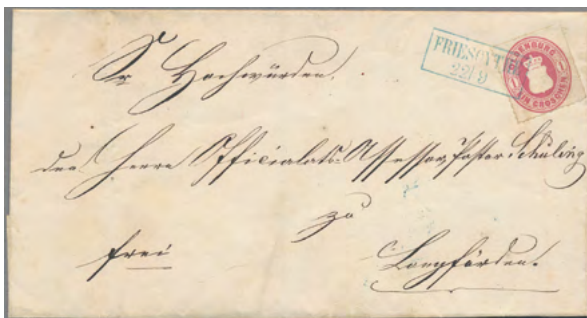 FRIESOYT
22/9
OLDENBURG
EIN GROSCHEN
Sr Hochwürden.
den Herrn Officialats-Assessor, Pastor Schüling
zu
frei
Langförden.